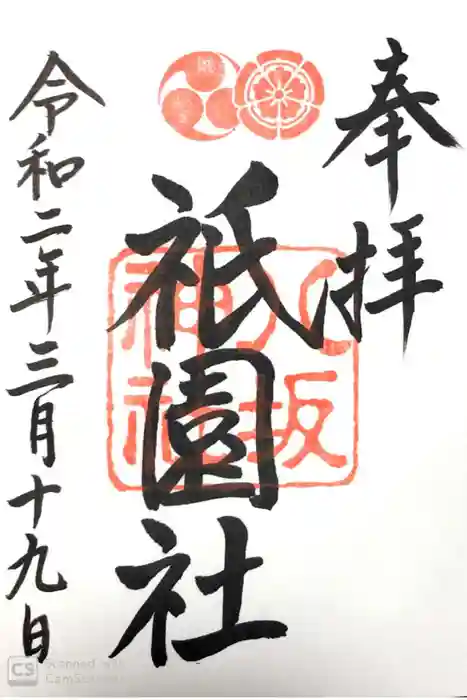 奉拝
祇園社
八坂
神社
令和二年三月十九日
CS Scanned with
CamScanner